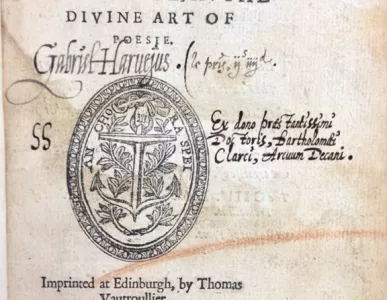 DIVINE ART OF
POESIE.
Gabriel Haruejus.
SS
ANCHORA SPEI
Ex dono præstantissimi
Doctoris, Bartholomæi
Clarci, Arcuum Decani.
Imprinted at Edinburgh, by Thomas
Vautroullier